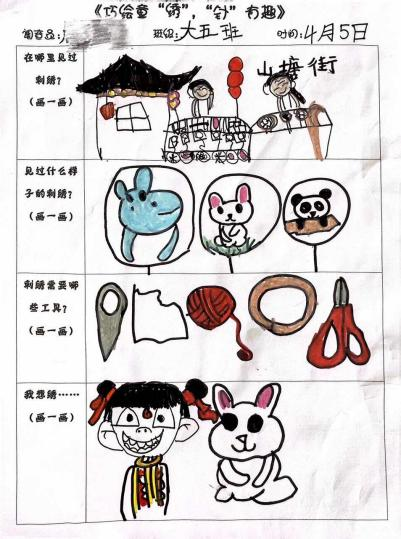 《巧绘童“绣”，“针”有趣》
班级：大五班
时间：4月5日
在哪里见过
刺绣？
（画一画）
山塘街
见过什么样
子的刺绣？
（画一画）
刺绣需要哪
些工具？
（画一画）
我想绣……
（画一画）